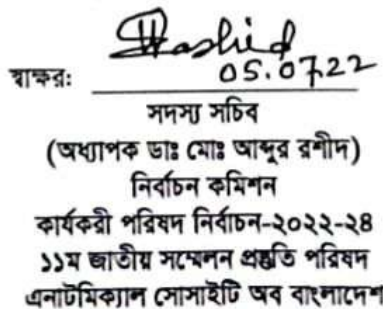 Rashid
05.07.22
স্বাক্ষর:
সদস্য সচিব
(অধ্যাপক ডাঃ মোঃ আব্দুর রশীদ)
নির্বাচন কমিশন
কার্যকরী পরিষদ নির্বাচন-২০২২-২৪
১১ম জাতীয় সম্মেলন প্রস্তুতি পরিষদ
এনাটমিক্যাল সোসাইটি অব বাংলাদেশ